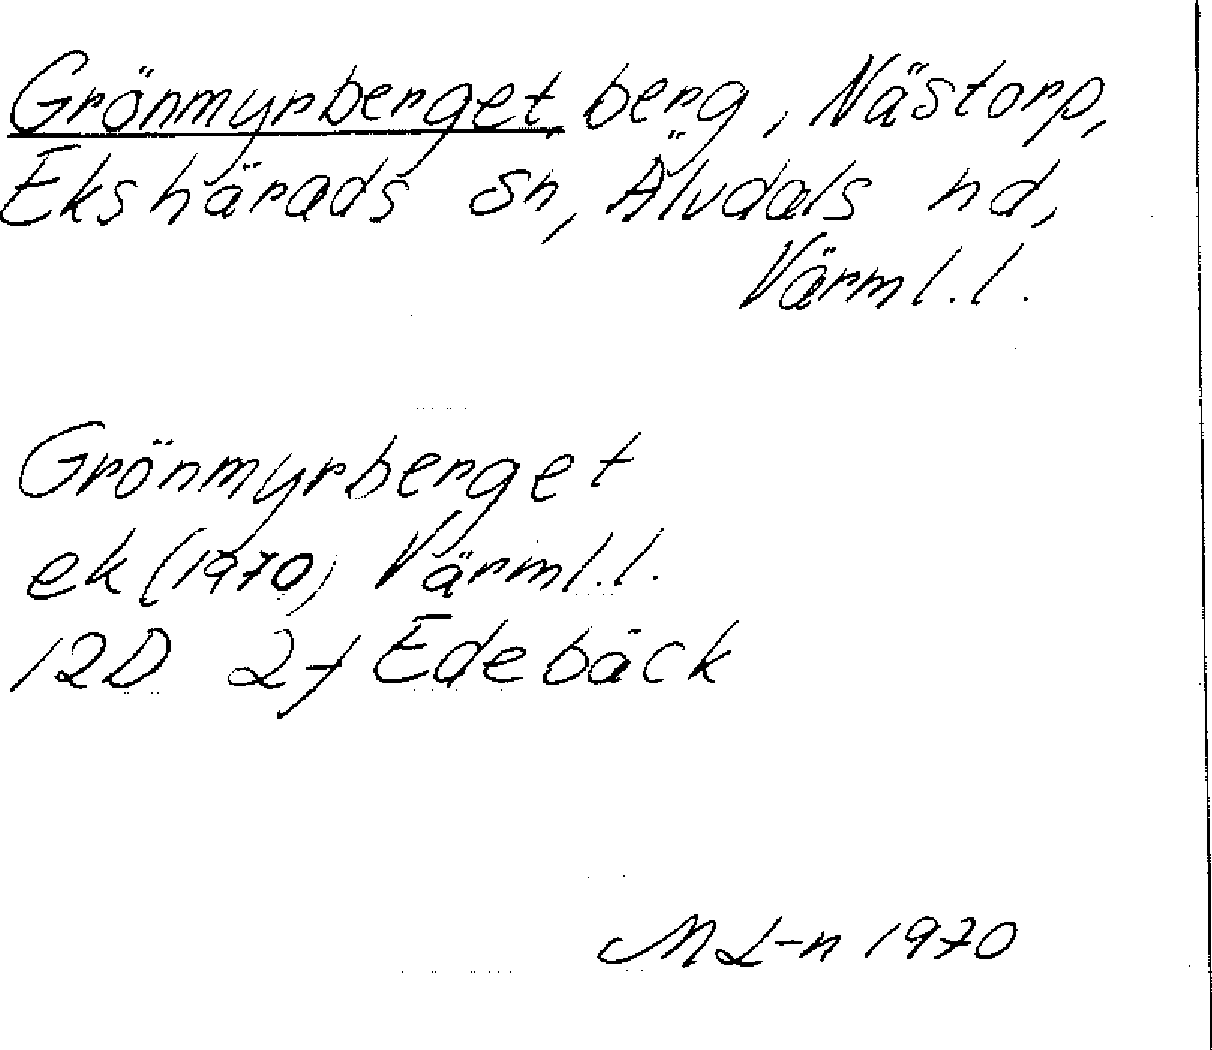 Grönmyrberget berg, Nästorp,
Ekshärads sn, Älvdals hd,
Värml.l.
Grönmyrberget
ek (1970) Värml.l.
12D 2f Edebäck
M L-n 1970